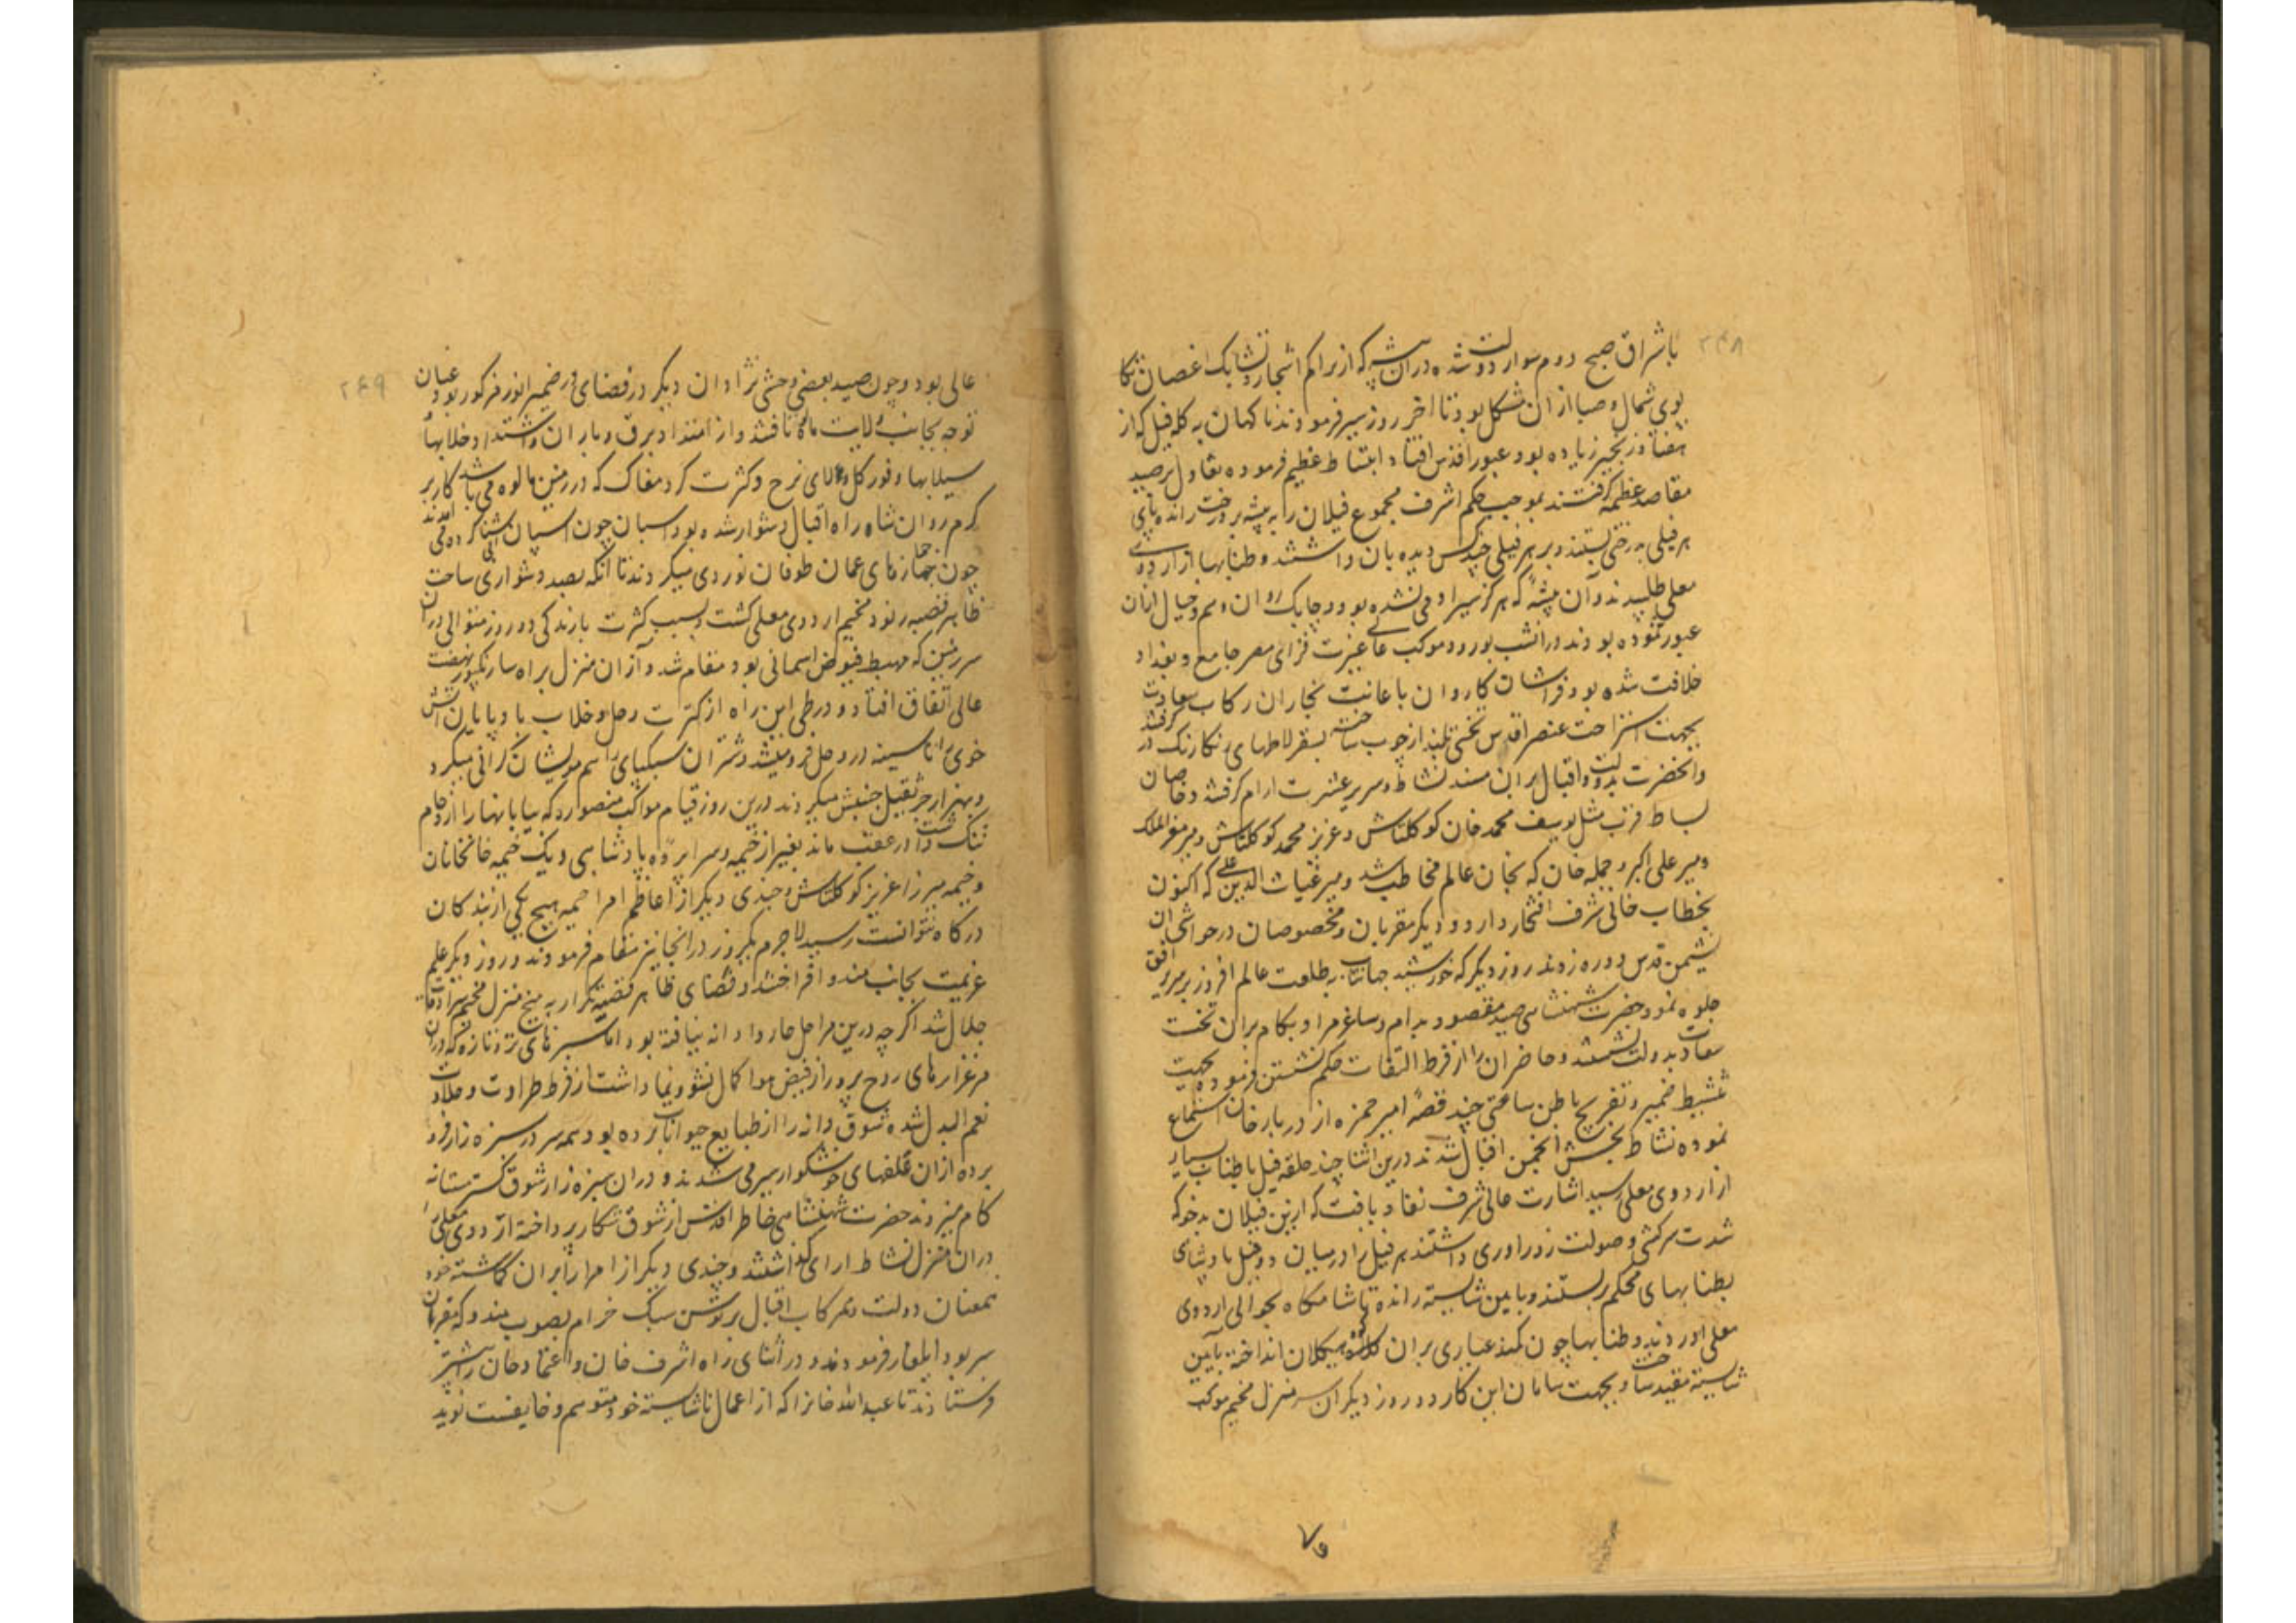 ۲۴۸
باشراق صبح دوم سوار دولت شده دران بیشه که از تراکم اشجار و تشابک اغصان تکا
پوی شمال و صبا ازان مشکل بود تا اخر روز سیر فرمودند ناکهان به کله فیل که از
هفتاد زنجیر زیاده بود عبور اقدس افتاد انبساط عظیم فرموده تفاول بر صید
مقاصد عظمه کرفتند بموجب حکم اشرف مجموع فیلان را به بیشه بر درخت رانده پای
هر فیلی بدرختی بستند و بر هر فیلی چند کس دیده بان داشتند و طنابها از اردوی
معلی طلبیدند و آن بیشه که هرکز پی سپر ادمی نشده بود و چابک روان وهم و خیال ازان
عبور ننموده بودند درانشب بورود موکب عالی غیرت فزای مصر جامع و بغداد
خلافت شده بود فراشان کاردان باعانت نجاران رکاب سعادت
بجهت استراحت عنصر اقدس تختی بلند از چوب ساخته بسقرلاطهای رنکارنک در کرفتند
وانحضرت بدولت واقبال بران مسند نشاط و سریر عشرت ارام کرفتند و خاصان
بساط قرب مثل یوسف محمد خان کوکلتاش و عزیز محمد کوکلتاش و میر معز الملک
و میر علی اکبر و جمله خان که بخان عالم مخاطب شد و میر غیاث الدین علی که اکنون
بخطاب خانی شرف افتخار دارد و دیکر مقربان و مخصوصان در حواشی ان
نشیمن قدس دوره زدند روز دیکر که خورشید جهانتاب به طلعت عالم افروز بر سریر افق
جلوه نمود حضرت شهنشاهی صید مقصود بدام و ساغر مراد بکام بران تخت
سعادت بدولت نشستند و حاضران را از فرط التفات حکم نشستن فرموده بجهت
تنشیط ضمیر و تفریح باطن ساعتی چند قصه امیر حمزه از دربار خان استماع
نموده نشاط بخش انجمن اقبال شدند درین اثنا چند حلقه فیل باطناب بسیار
از اردوی معلی رسید اشارت عالی شرف نفاد یافت که ازین فیلان بدخو که
شدت سرکشی و صولت زوراوری داشتند هر فیل را درمیان دو فیل پادشاهی
بطنابهای محکم بربستند و باین شایسته رانده تا شامکاه بحوالی اردوی
معلی اوردند و طنابها چون کمند عیاری بران کوه هیکلان انداخته بآیین
شایسته مقید ساختند و بجهت سامان این کار دو روز دیکر ان سرمنزل مخیم موکب
۲۴۹
عالی بود و چون صید بعضی وحشی نژادان دیکر در فضای ضمیر انور مرکوز بود عنان
توجه بجانب ولایت تافتند و از امتداد برق و باران و اشتداد خلابها
سیلابها و وفور کل و لای نرح و کثرت کرد مغاک که در زمین مالوه می باشد کار بر
کرم روان شاه راه اقبال دشوار شده بود اسپان چون اسپان آبی شنا کرده می امدند
چون جمازهای عمان طوفان نوردی میکردند تا انکه بصد دشواری ساحت
ظاهر قصبه رنود مخیم اردوی معلی کشت و بسبب کثرت بارندکی دو روز متوالی دران
سرزمین که مهبط فیوض اسمانی بود مقام شد و آزان منزل براه سارنکپور نهضت
عالی اتفاق افتاد و در طی این راه از کثرت وحل و خلاب بادپایان اتش
خوی را تا سینه در وحل فرو میشد و شتران سبکپای را سم مویشان کرانی میکرد
و بهزار جر ثقیل جنبش میکردند درین روز قیام مواکب منصور که بیابانها را ازدحام
تنک داشت درعقب ماند بغیر از خیمه و سراپرده پادشاهی و یک خیمه خانخانان
و خیمه میرزا عزیز کوکلتاش و چندی دیکر از اعاظم امرا خیمه هیچ یکی از بندکان
درکاه نتوانست رسید لاجرم یکروز در انجا نیز مقام فرمودند و روز دیکر علم
عزیمت بجانب مندو افراختند و فضای ظاهر قصبه کرار به پنج منزل مخیم سرادقات
جلال شد اکرچه درین مراحل چاروا دانه نیافته بود اما سبزهای تر و تازه که دران
مرغزارهای روح پرور از فیض هوا کمال نشو و نما داشت از فرط طراوت و حلاوت
نعم البدل شده شوق دانه را از طبایع حیوانات برده بود همه سر در سبزه زار فرو
برده ازان علفهای خوشکوار سیر می شدند و دران سبزه زار شوق کستر مستانه
کام میزدند حضرت شهنشاهی خاطر اقدس از شوق شکار پرداخته اردوی معلی را
دران منزل نشاط ارای کذاشتند و چندی دیکر از امرا را بران کماشته خود
همعنان دولت و همرکاب اقبال بر توسن سبک خرام بصوب مندو که مقر ان
سر بود ایلغار فرمودند و در اثنای راه اشرف خان و اعتماد خان را پیشتر
فرستادند تا عبدالله خانرا که از اعمال ناشایسته خود متوهم و خایفست نوید